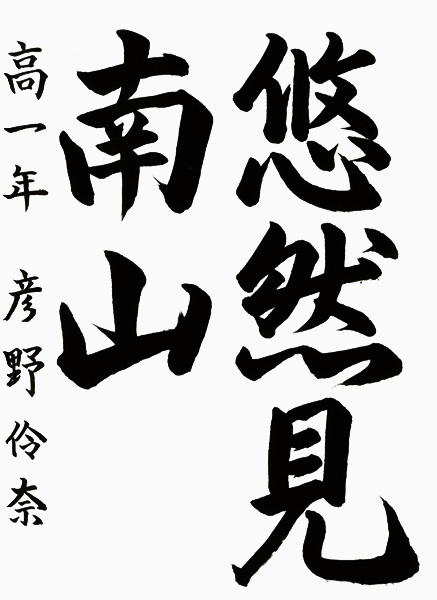 悠然見
南山
高一年 彦野伶奈